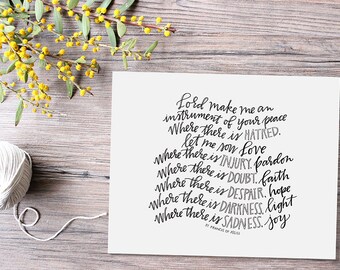 Lord make me an
instrument of your peace
Where there is HATRED.
let me sow love
Where there is INJURY. pardon
Where there is DOUBT. faith
Where there is DESPAIR. hope
Where there is DARKNESS. light
Where there is SADNESS. joy
ST FRANCIS OF ASSISI